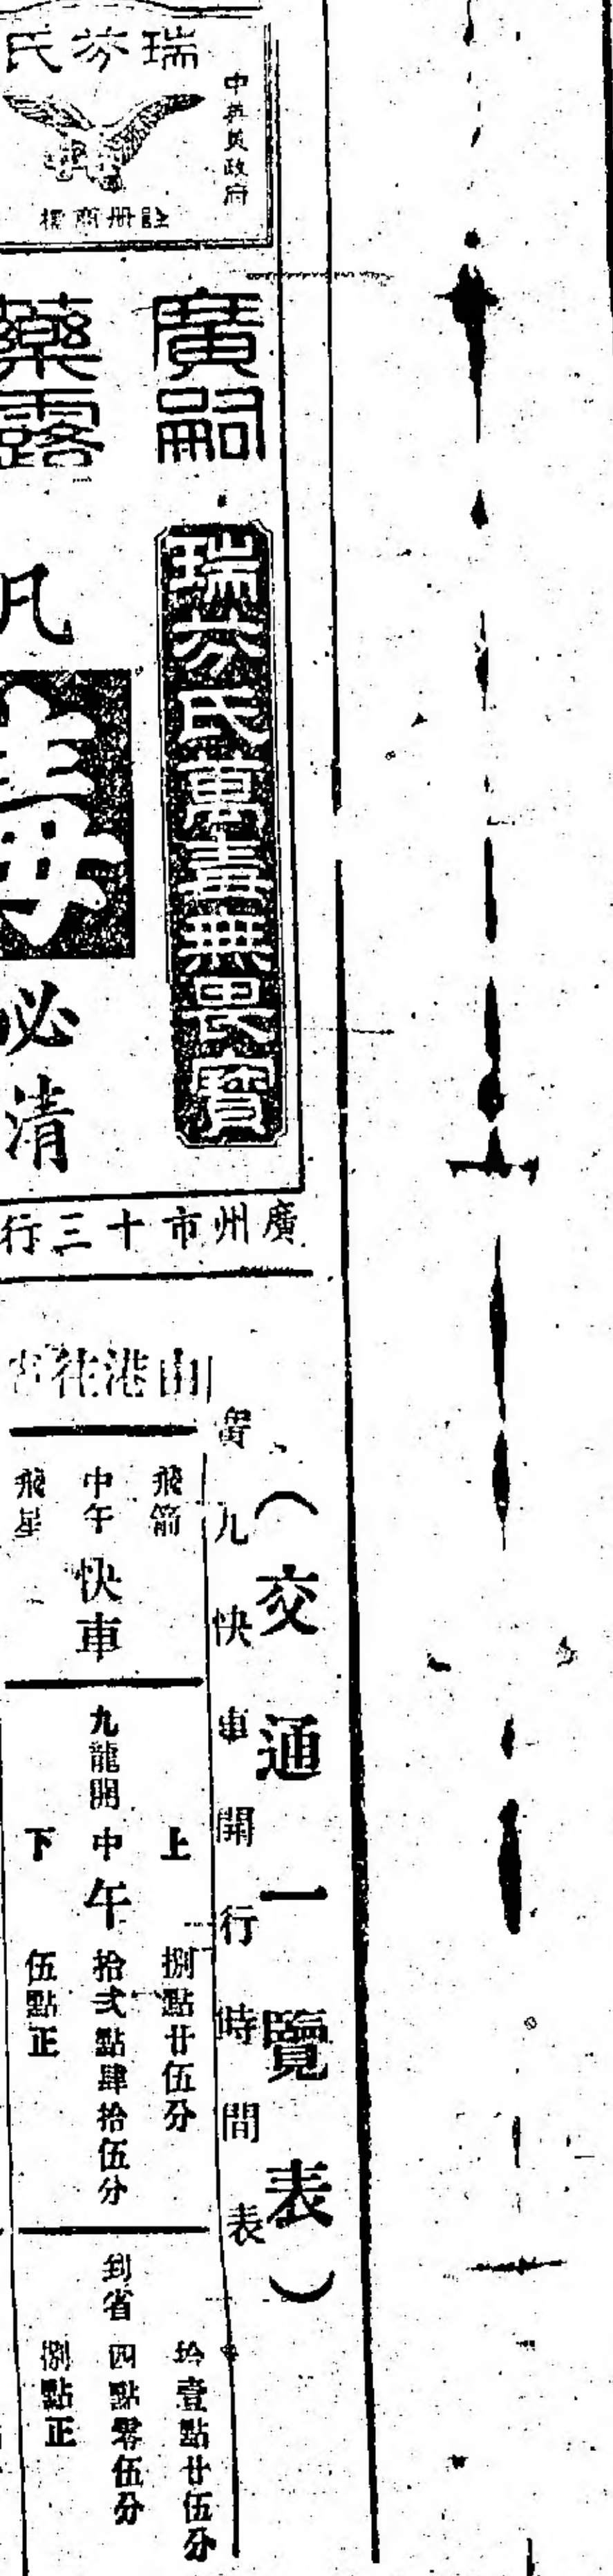 瑞芬氏
中英美政府
註冊商標
廣嗣
藥露
瑞芬氏萬毒無畏寶
凡
毒
必清
廣州市十三行
（交通一覽表）
廣九快車開行時間表
由港往省
飛箭
中午
飛星
快車
九龍開
上
中
下
午
捌點廿伍分
拾弍點肆拾伍分
伍點正
到省
拾壹點廿伍分
四點零伍分
捌點正